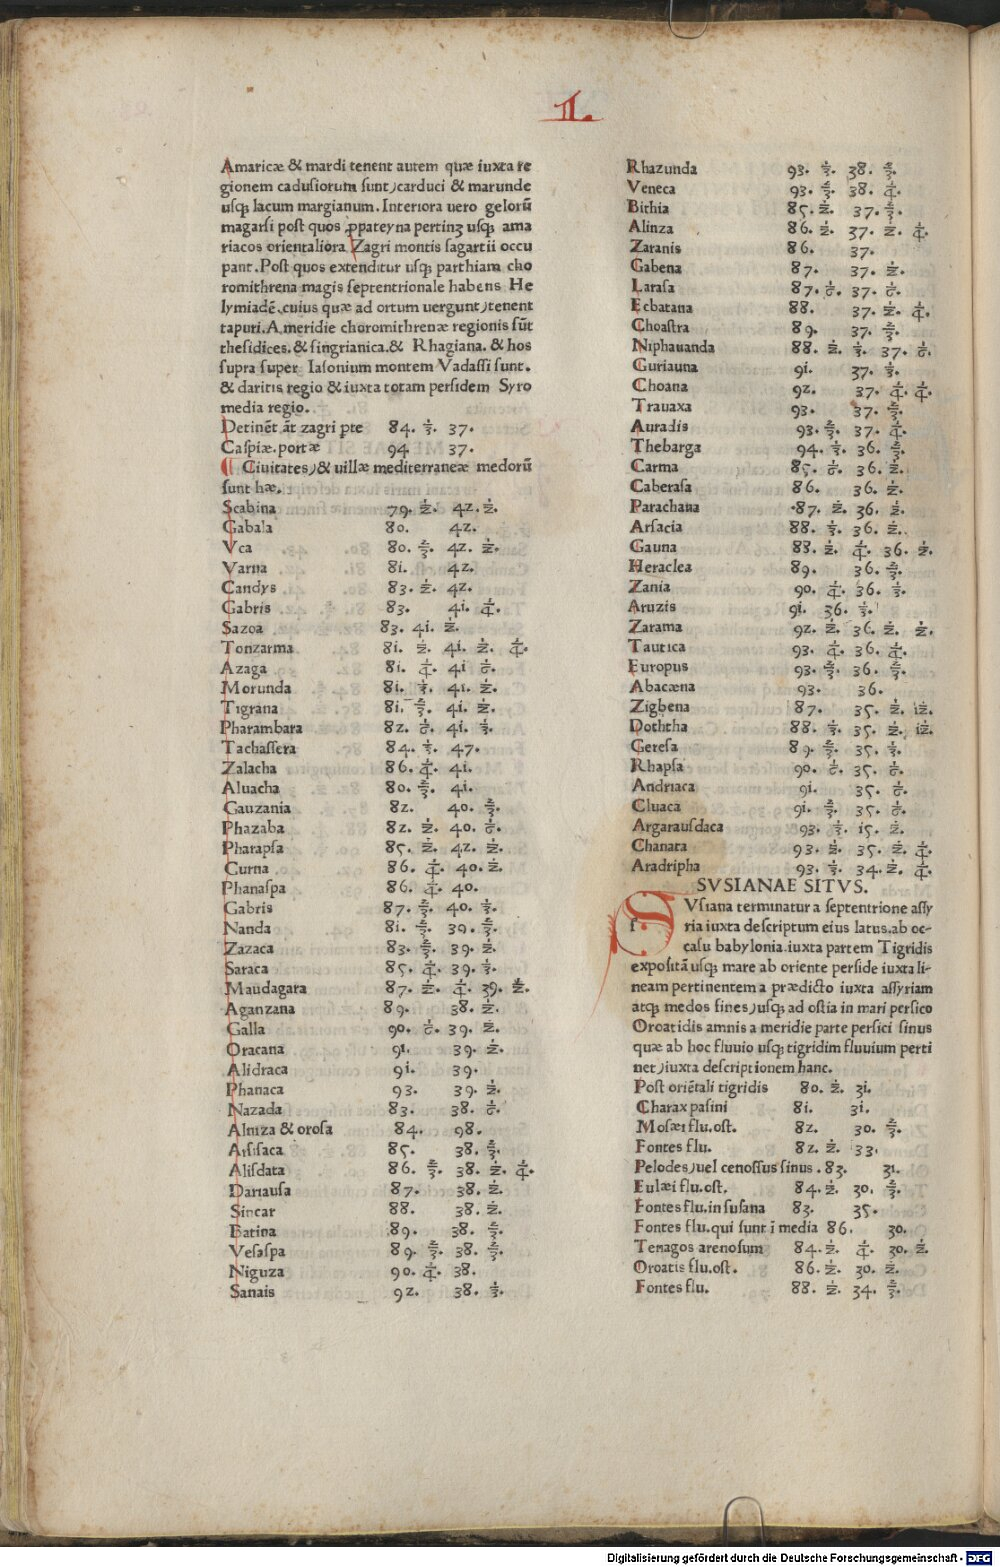 II.
Amaricæ & mardi tenent autem quæ iuxta re
gionem cadusiorum sunt, carduci & marunde
usq; lacum margianum. Interiora uero gelorū
magarsi post quos ꝓpateyna pertinꝫ usq; ama
riacos orientaliora Zagri montis sagartii occu
pant. Post quos extenditur usq; parthiam cho
romithrena magis septentrionale habens He
lymiadē, cuius quæ ad ortum uergunt, tenent
tapuri. A meridie choromithrenæ regionis sūt
thesidices. & singrianica. & Rhagiana. & hos
supra super Iasonium montem Vadassi sunt.
& daritis regio & iuxta totam persidem Syro
media regio.
Detinēt āt zagri ꝑte 84. ⅓. 37.
Caspiæ. portæ 94 37.
¶ Ciuitates, & uillæ mediterraneæ medorū
sunt hæ.
Scabina 79. ½. 42. ½.
Gabala 80. 42.
Vca 80. ⅔. 42. ½.
Varna 81. 42.
Candys 83. ½. 42.
Gabris 83. 41. ¼.
Sazoa 83. 41. ½.
Tonzarma 81. ½. 41. ½. ¼.
Azaga 81. ¼. 41 ⅙.
Morunda 81. ⅓. 41. ½.
Tigrana 81. ⅔. 41. ½.
Pharambara 82. ⅙. 41. ⅓.
Tachassera 84. ⅓. 47.
Zalacha 86. ¼. 41.
Aluacha 80. ⅔. 41.
Gauzania 82. 40. ⅔.
Phazaba 82. ½. 40. ⅙.
Pharapsa 85. ½. 42. ½.
Curna 86. ¼. 40. ½.
Phanaspa 86. ¼. 40.
Gabris 87. ⅔. 40. ⅓.
Nanda 81. ⅔. 39. ⅔.
Zazaca 83. ⅔. 39. ½.
Saraca 85. ¼. 39. ⅓.
Maudagara 87. ½. ¼. 39. ½.
Aganzana 89. 38. ½.
Galla 90. ⅙. 39. ½.
Oracana 91. 39. ½.
Alidraca 91. 39.
Phanaca 93. 39. ½.
Nazada 83. 38. ⅙.
Alniza & orosa 84. 98.
Arsisaca 85. 38. ⅔.
Alisdata 86. ⅔. 38. ½. ¼.
Dariausa 87. 38. ½.
Sincar 88. 38. ½.
Batina 89. 38. ⅔.
Vesaspa 89. ⅔. 38. ⅔.
Niguza 90. ¼. 38.
Sanais 92. 38. ⅓.
Rhazunda 93. ⅓. 38. ⅔.
Veneca 93. ⅔. 38. ¼.
Bithia 85. ½. 37. ⅔.
Alinza 86. ½. 37. ½. ¼.
Zaranis 86. 37.
Gabena 87. 37. ½.
Larasa 87. ⅙. 37. ⅙.
Ecbatana 88. 37. ½. ¼.
Choastra 89. 37. ⅔.
Niphauanda 88. ½. ⅓. 37. ⅙.
Guriauna 91. 37. ⅓.
Choana 92. 37. ¼. ¼.
Trauaxa 93. 37. ⅔.
Auradis 93. ⅔. 37. ¼.
Thebarga 94. ⅓. 36. ⅔.
Carma 85. ⅙. 36. ½.
Caberasa 86. 36. ½.
Parachana 87. ½. 36. ½.
Arsacia 88. ⅓. 36. ½.
Gauna 88. ½. ¼. 36. ½.
Heraclea 89. 36. ⅔.
Zania 90. ¼. 36. ⅓.
Aruzis 91. 36. ⅓.
Zarama 92. ½. 36. ½. ½.
Tautica 93. ¼. 36. ¼.
Europus 93. ⅔. 36. ⅔.
Abacæna 93. 36.
Zigbena 87. 35. ½. 12.
Doththa 88. ⅓. 35. ½. 12.
Geresa 89. ⅔. 35. ⅓.
Rhapsa 90. ⅙. 35. ⅙.
Andriaca 91. 35. ⅙.
Cluaca 91. ⅔. 35. ⅙.
Argarausdaca 93. ⅓. 15. ½.
Chanata 93. ½. 35. ½. ¼.
Aradripha 93. ⅓. 34. ½. ¼.
SVSIANAE SITVS.
SVsiana terminatur a septentrione assy
ria iuxta descriptum eius latus. ab oc-
casu babylonia. iuxta partem Tigridis
expositā usq; mare ab oriente perside iuxta li-
neam pertinentem a prædicto iuxta assyriam
atq; medos fines, usq; ad ostia in mari persico
Oroatidis amnis a meridie parte persici sinus
quæ ab hoc fluuio usq; tigridim fluuium perti
net, iuxta descriptionem hanc.
Post oriētali tigridis 80. ½. 31.
Charax pasini 81. 31.
Mosæi flu. ost. 82. 30. ⅔.
Fontes flu. 82. ½. 33.
Pelodes, uel cenossus sinus. 83. 31.
Eulæi flu. ost. 84. ½. 30. ⅔.
Fontes flu. in susana 83. 35.
Fontes flu. qui sunt ī media 86. 30.
Tenagos arenosum 84. ½. ¼. 30. ½.
Oroatis flu. ost. 86. ½. 30. ½.
Fontes flu. 88. ½. 34. ⅔.
Digitalisierung gefördert durch die Deutsche Forschungsgemeinschaft - DFG